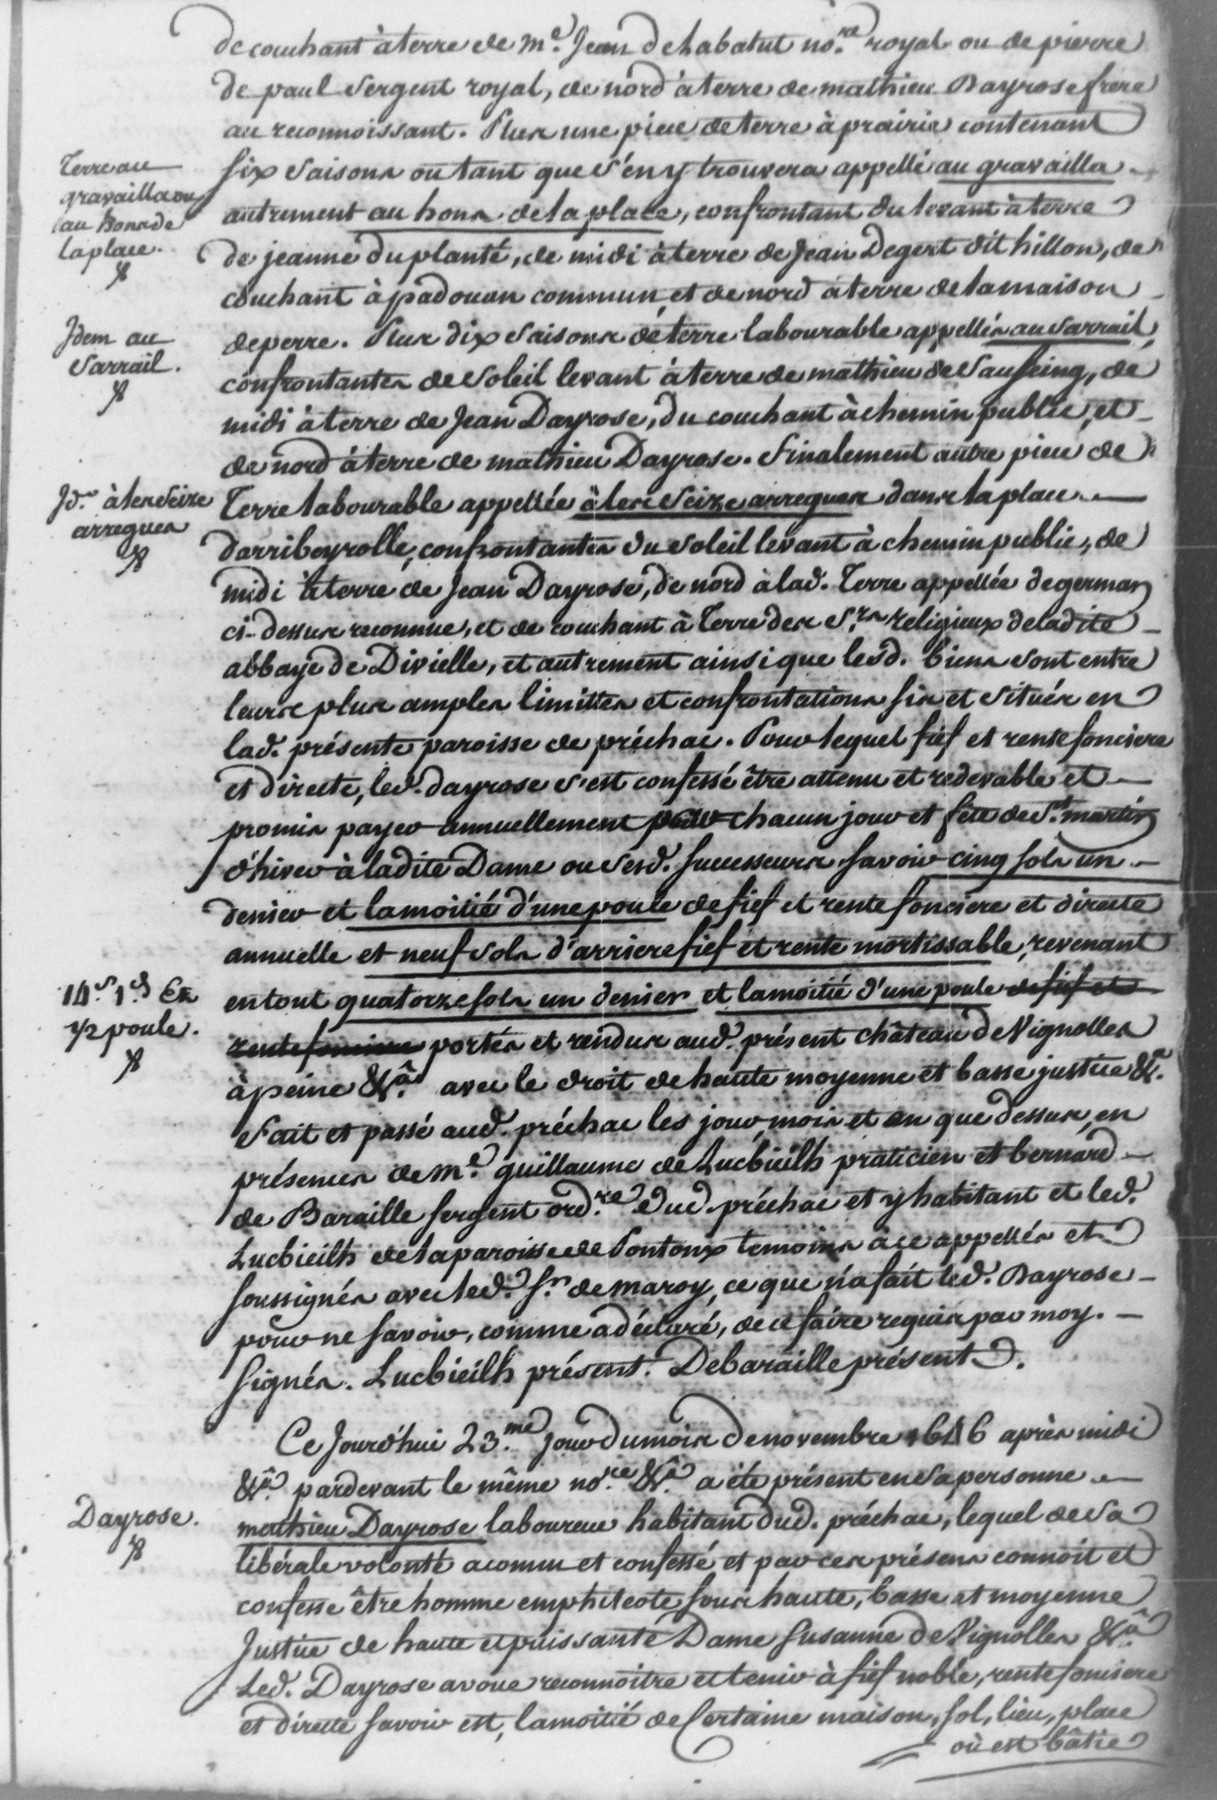 de couchant à terre de m.e Jean delabatut no.re royal ou de pierre
de paul sergent royal, de nord à terre de mathieu Dayrose frere
au reconnoissant. Plus une piece de terre à prairie contenant
Terre au
gravailla ou
au hons de
la place.
six saisons ou tant que s'en y trouvera appellé au gravailla
autrement au hons de la place, confrontant du levant à terre
de jeanne duplanté, de midi à terre de Jean Degert dit hillon, de
couchant à padouan commun et de nord à terre de la maison
Idem au
sarrail.
de perre. Plus dix saisons de terre labourable appellés au sarrail,
confrontantes de soleil levant à terre de mathieu de Sauseing, de
midi à terre de Jean Dayrose, du couchant à chemin public, et
de nord à terre de mathieu Dayrose. Finalement autre piece de
Id. à les seize
arregues
Terre labourable appellée à les seize arregues dans la place
darribeyrolle, confrontantes du soleil levant à chemin public, de
midi à terre de Jean Dayrose, de nord à lad. Terre appellée degerman
ci-dessus reconnue, et de couchant à Terre des S.rs religieux de ladite
abbaye de Divielle, et autrement ainsi que lesd. biens sont entre
leurs plus amples limittes et confrontations sis et situés en
lad. présente paroisse de préchac. Pour lequel fief et rente fonciere
et directe, led. dayrose s'est confessé être attenu et redevable et
promis payer annuellement pour chacun jour et fête de S.t martin
d'hiver à ladite Dame ou sesd. successeurs savoir cinq sols un
denier et la moitié d'une poule de fief et rente fonciere et directe
annuelle et neuf sols d'arriere fief et rente mortissable, revenant
14.s 1.d Et
1/2 poule.
en tout quatorze sols un denier et la moitié d'une poule de fief et
rente fonciere portés et rendus aud. présent château de Vignolles
à peine &.a avec le droit de haute moyenne et basse justice &.a
Fait et passé aud. préchac les jour, mois et an que dessus, en
présences de m.e guillaume de Lucbieilh praticien et bernard
de Baraille sergent ord.re dud. préchac et y habitant et led.
Lucbieilh de la paroisse de Pontonx temoins à ce appellés et
soussignés avec led. S.r de maroy, ce que n'a fait led. Dayrose
pour ne savoir, comme a déclaré, de ce faire requis par moy.
Signés. Lucbieilh présent. Debaraille présent.
Ce Jourd'hui 23.me jour du mois de novembre 1616 après midi
&.a pardevant le même no.re &.a a été présent en sa personne
Dayrose.
mathieu Dayrose laboureur habitant dud. préchac, lequel de sa
libérale volonté a connu et confessé et par ces présens connoit et
confesse être homme emphiteote sous haute, basse et moyenne
Justice de haute et puissante Dame Susanne de Vignolles &.a
Led. Dayrose avoue reconnoitre et tenir à fief noble, rente fonciere
et directe savoir est, la moitié de Certaine maison, sol, lieu, place
où est bâtie